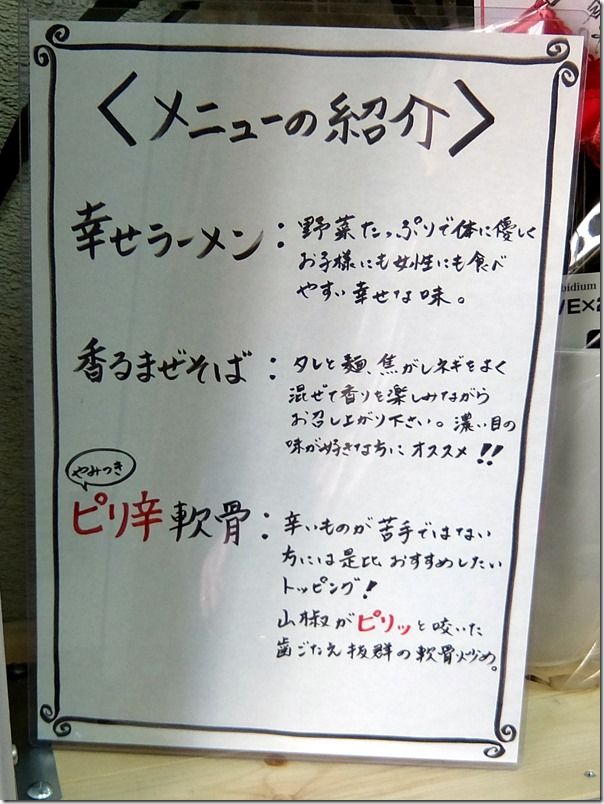 <メニューの紹介>
幸せラーメン：野菜たっぷりで体に優しく
お子様にも女性にも食べ
やすい幸せな味。
香るまぜそば：タレと麺、焦がしネギをよく
混ぜて香りを楽しみながら
お召し上がり下さい。濃い目の
味が好きな方にオススメ!!
やみつき
ピリ辛軟骨：辛いものが苦手ではない
方には是非おすすめしたい
トッピング!
山椒がピリッと咬いた
歯ごたえ抜群の軟骨炒め。
bidium